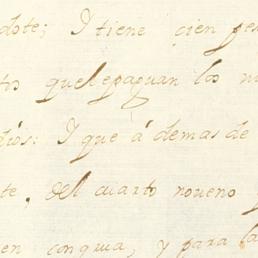 dote; I tiene cien pes
tos quele paguan los n
dios: I que á demas de
te, del cuarto noveno
en congrua, y para la